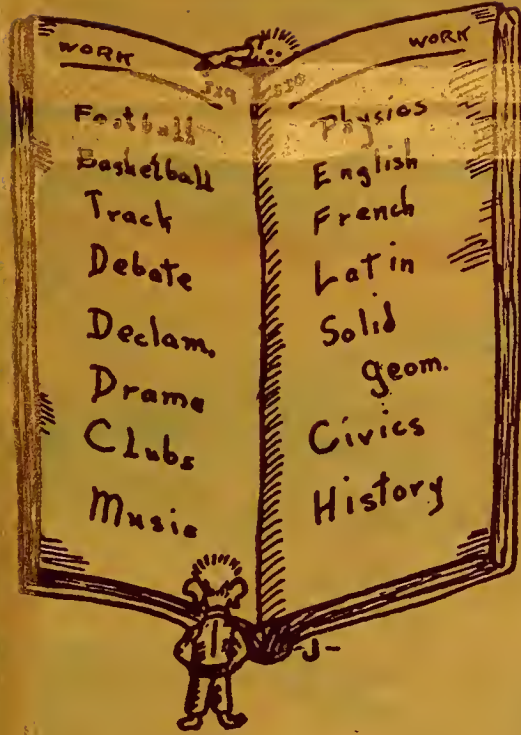 WORK
Football
Basketball
Track
Debate
Declam.
Drama
Clubs
Music
WORK
Physics
English
French
Latin
Solid
geom.
Civics
History
-J-